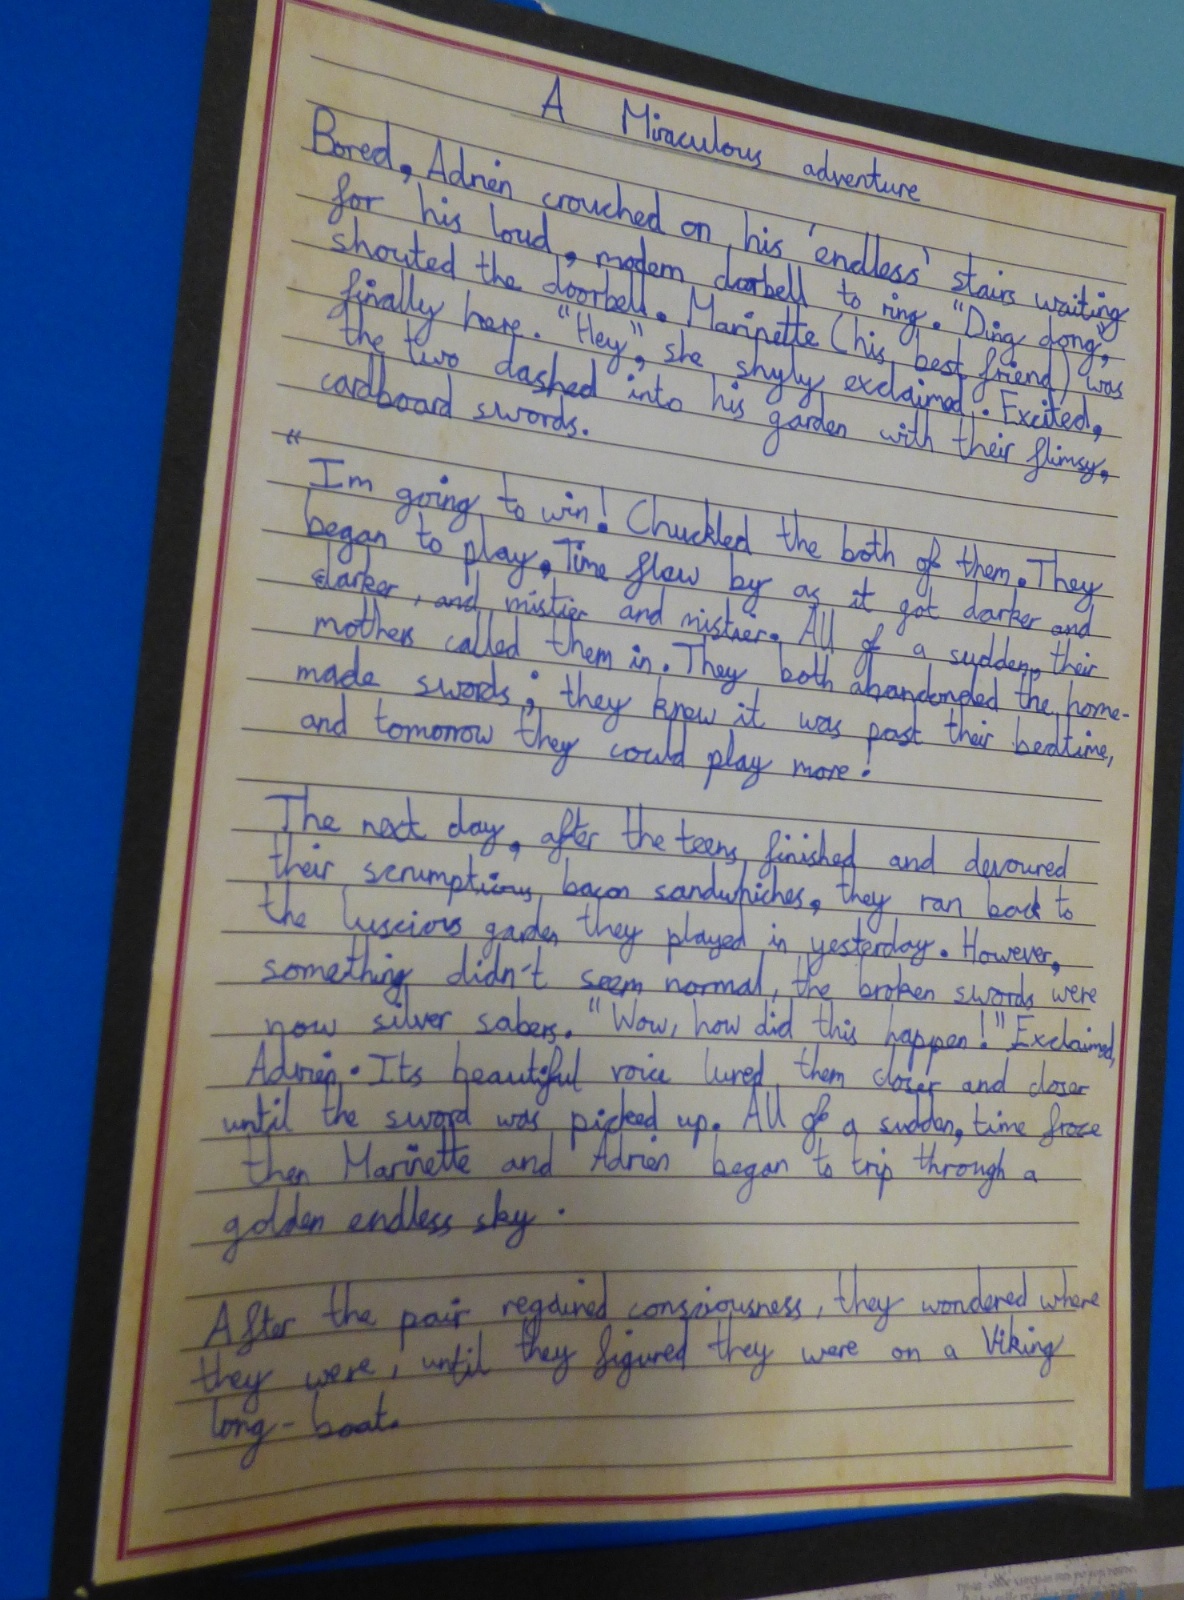 A Miraculous adventure
Bored, Adrien crouched on his 'endless' stairs waiting
for his loud, modern doorbell to ring. "Ding dong,"
shouted the doorbell. Marinette (his best friend) was
finally here. "Hey", she shyly exclaimed. Excited,
the two dashed into his garden with their flimsy,
cardboard swords.
"
Im going to win! Chuckled the both of them. They
began to play. Time flew by as it got darker and
darker, and mistier and mistier. All of a sudden, their
mothers called them in. They both abandonded the home-
made swords; they knew it was past their bedtime,
and tomorrow they could play more!
The next day, after the teens finished and devoured
their scrumptious bacon sandwhiches, they ran back to
the luscious garden they played in yesterday. However,
something didn't seem normal, the broken swords were
now silver sabers. "Wow, how did this happen!" Exclaimed,
Adrien. Its beautiful voice lured them closer and closer
until the sword was picked up. All of a sudden, time froze
then Marinette and Adrien began to trip through a
golden endless sky.
After the pair regained consciousness, they wondered where
they were, until they figured they were on a Viking
long-boat.